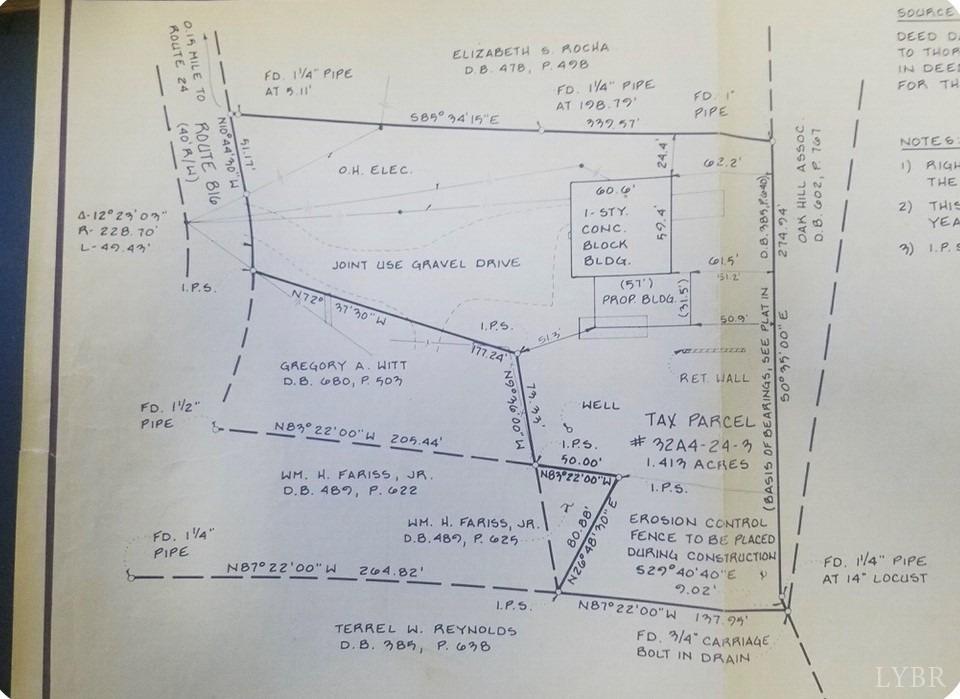 0.15 MILE TO
ROUTE 24
ROUTE 816
(40' R/W)
N10°44'30"W
51.17'
FD. 1¼" PIPE
AT 5.11'
ELIZABETH S. ROCHA
D.B. 478, P. 498
FD. 1¼" PIPE
AT 198.79'
FD. 1"
PIPE
S85°34'15"E
339.57'
SOURCE
DEED DA
TO THOR
IN DEED
FOR TH
NOTES:
1) RIGH
THE
2) THIS
YEA
3) I.P.S
O.H. ELEC.
24.4'
62.2'
60.6'
1-STY.
CONC.
BLOCK
BLDG.
59.4'
OAK HILL ASSOC.
D.B. 602, P. 767
Δ-12°23'03"
R- 228.70'
L- 49.43'
I.P.S.
JOINT USE GRAVEL DRIVE
61.5'
51.2'
(57')
PROP. BLDG.
(31.5')
50.9'
(BASIS OF BEARINGS, SEE PLAT IN D.B. 385, P. 640)
274.94'
S0°35'00"E
N72°37'30"W
177.24'
I.P.S.
51.3'
GREGORY A. WITT
D.B. 680, P. 503
RET. WALL
N9°36'00"W
73.33'
WELL
TAX PARCEL
# 32A4-24-3
1.413 ACRES
FD. 1½"
PIPE
N83°22'00"W 205.44'
I.P.S.
50.00'
N83°22'00"W
I.P.S.
WM. H. FARISS, JR.
D.B. 489, P. 622
WM. H. FARISS, JR.
D.B. 489, P. 625
80.88'
N26°48'30"E
EROSION CONTROL
FENCE TO BE PLACED
DURING CONSTRUCTION
S29°40'40"E
9.02'
FD. 1¼"
PIPE
FD. 1¼" PIPE
AT 14" LOCUST
N87°22'00"W 264.82'
I.P.S.
N87°22'00"W 137.95'
TERREL W. REYNOLDS
D.B. 385, P. 638
FD. ¾" CARRIAGE
BOLT IN DRAIN
LYBR